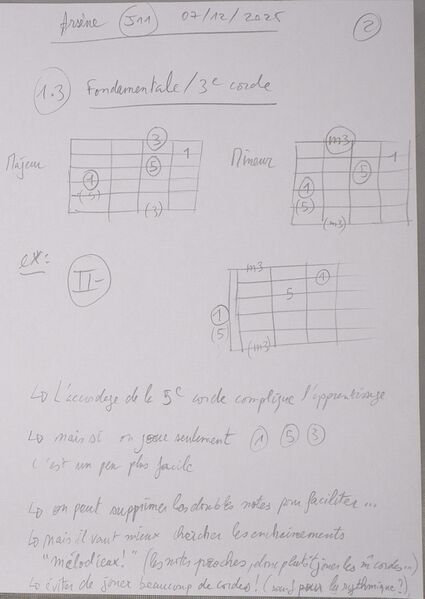 Arsène J11 07/12/2025 2
1.3 Fondamentale / 3e corde
Majeur 3 1 5 1 (5) (3)
Mineur m3 1 5 1 (5) (m3)
ex: II- m3 1 5 1 (5) (m3)
↳ L'accordage de la 5e corde complique l'apprentissage
↳ mais si on joue seulement 1 5 3
c'est un peu plus facile
↳ on peut supprimer les doubles notes pour faciliter...
↳ mais il vaut mieux chercher les enchaînements
"mélodieux!" (les notes proches, donc plutôt jouer les m̂ cordes...)
↳ éviter de jouer beaucoup de cordes! (sauf pour la rythmique?)